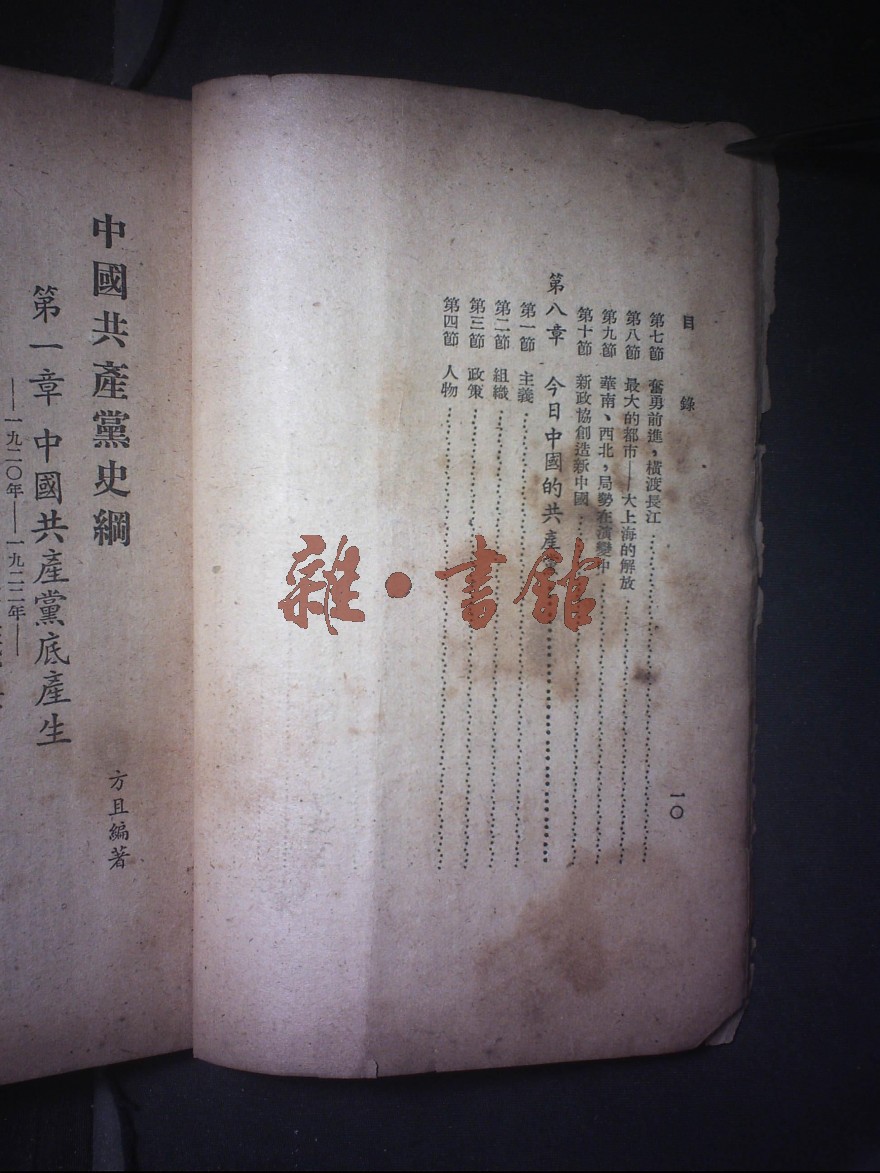 目錄
第七節 奮勇前進，橫渡長江
第八節 最大的都市——大上海的解放
第九節 華南、西北，局勢在演變中
第十節 新政協創造新中國
第八章 今日中國的共產黨
第一節 主義
第二節 組織
第三節 政策
第四節 人物
一〇
雜·書館
中國共產黨史綱
方且編著
第一章 中國共產黨底產生
——一九二〇年——一九二二年——